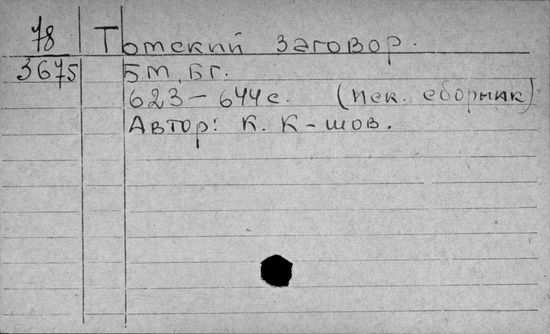 78 Томский заговор.
3675 БМ, БГ.
623 – 644 с. (Иск. сборник)
Автор: К. К-шов.